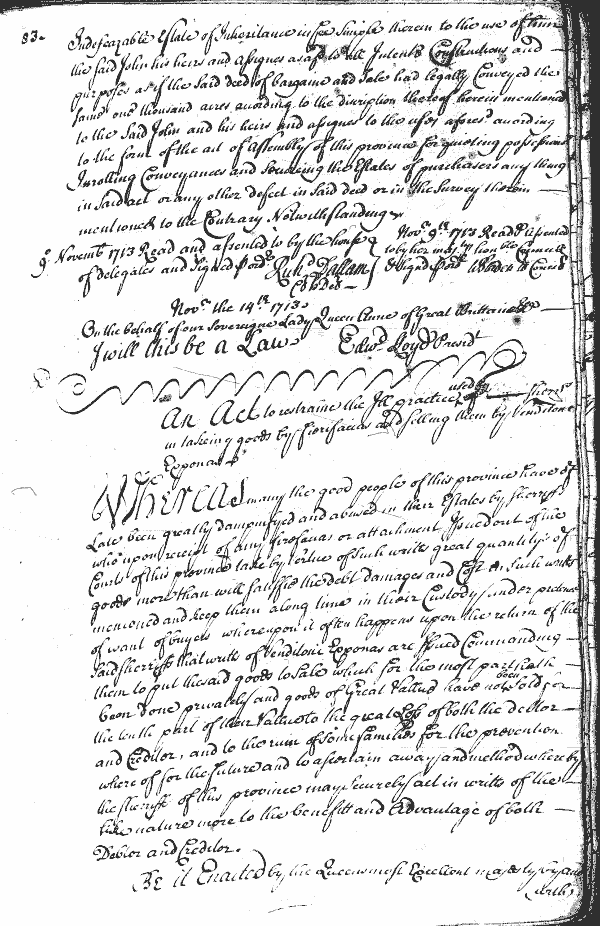 83.
Indefeazable Estate of Inheritance in fee Simple therein to the use of him
the said John his heirs and assignes as afsd to all Intents Constructions and
purposes as if the said deed of bargaine and Sale had legally Conveyed the
same one thousand acres according to the discription thereof herein mentioned
to the Said John and his heirs and assignes to the uses aforesd according
to the form of the act of Assembly of this province for quieting possessions
Inrolling Conveyances and Secureing the Estates of purchasers any thing
in said act or any other defect in Said deed or in the Survey therein
mentioned to the Contrary Notwithstanding
9o Novembr 1713 Read and assented to by the house
of delegates and Signed p ord
Richd Dallam
Cl ho Del
Novr 9th 1713 Read & Assented
to by her majtys hon ble Councill
& signed p ordr W Bladen Cl Concil
Novr the 14th 1713
On the behalf of our Sovereigne Lady Queen Anne of Great Brittain &c
I will this be a Law Edwd Lloyd Presidt
An Act to restraine the Ill practices used by Sherrs
in takeing goods by fierifacias and selling them by Venditone
Exponas &c
Whereas many the good people of this province have of
Late been greatly dampnifyed and abused in their Estates by sherriffs
who upon receipt of any fierifacias or attachment Issued out of the
Courts of this province take by vertue of such writts great quantitys of
goods more than will satisfie the debt damages and Cost in Such writts
mentioned and keep them along time in their Custody under pretence
of want of buyers whereupon it often happens upon the return of the
Said sherriffs that writts of Venditone Exponas are Issued Commanding
them to put the said goods to Sale which for the most part hath
been done privately and goods of Great Vallue have not been Sold for
the tenth part of their Value to the great Loss of both the debtor
and Creditor, and to the ruin of some families for the prevention
where of for the future and to ascertain a way and method whereby
the sherriffs of this province may securely act in writts of the
like nature more to the benefitt and Advantage of both
Debtor and Creditor.
Be it Enacted by the Queens most Excellent majesty by and
with